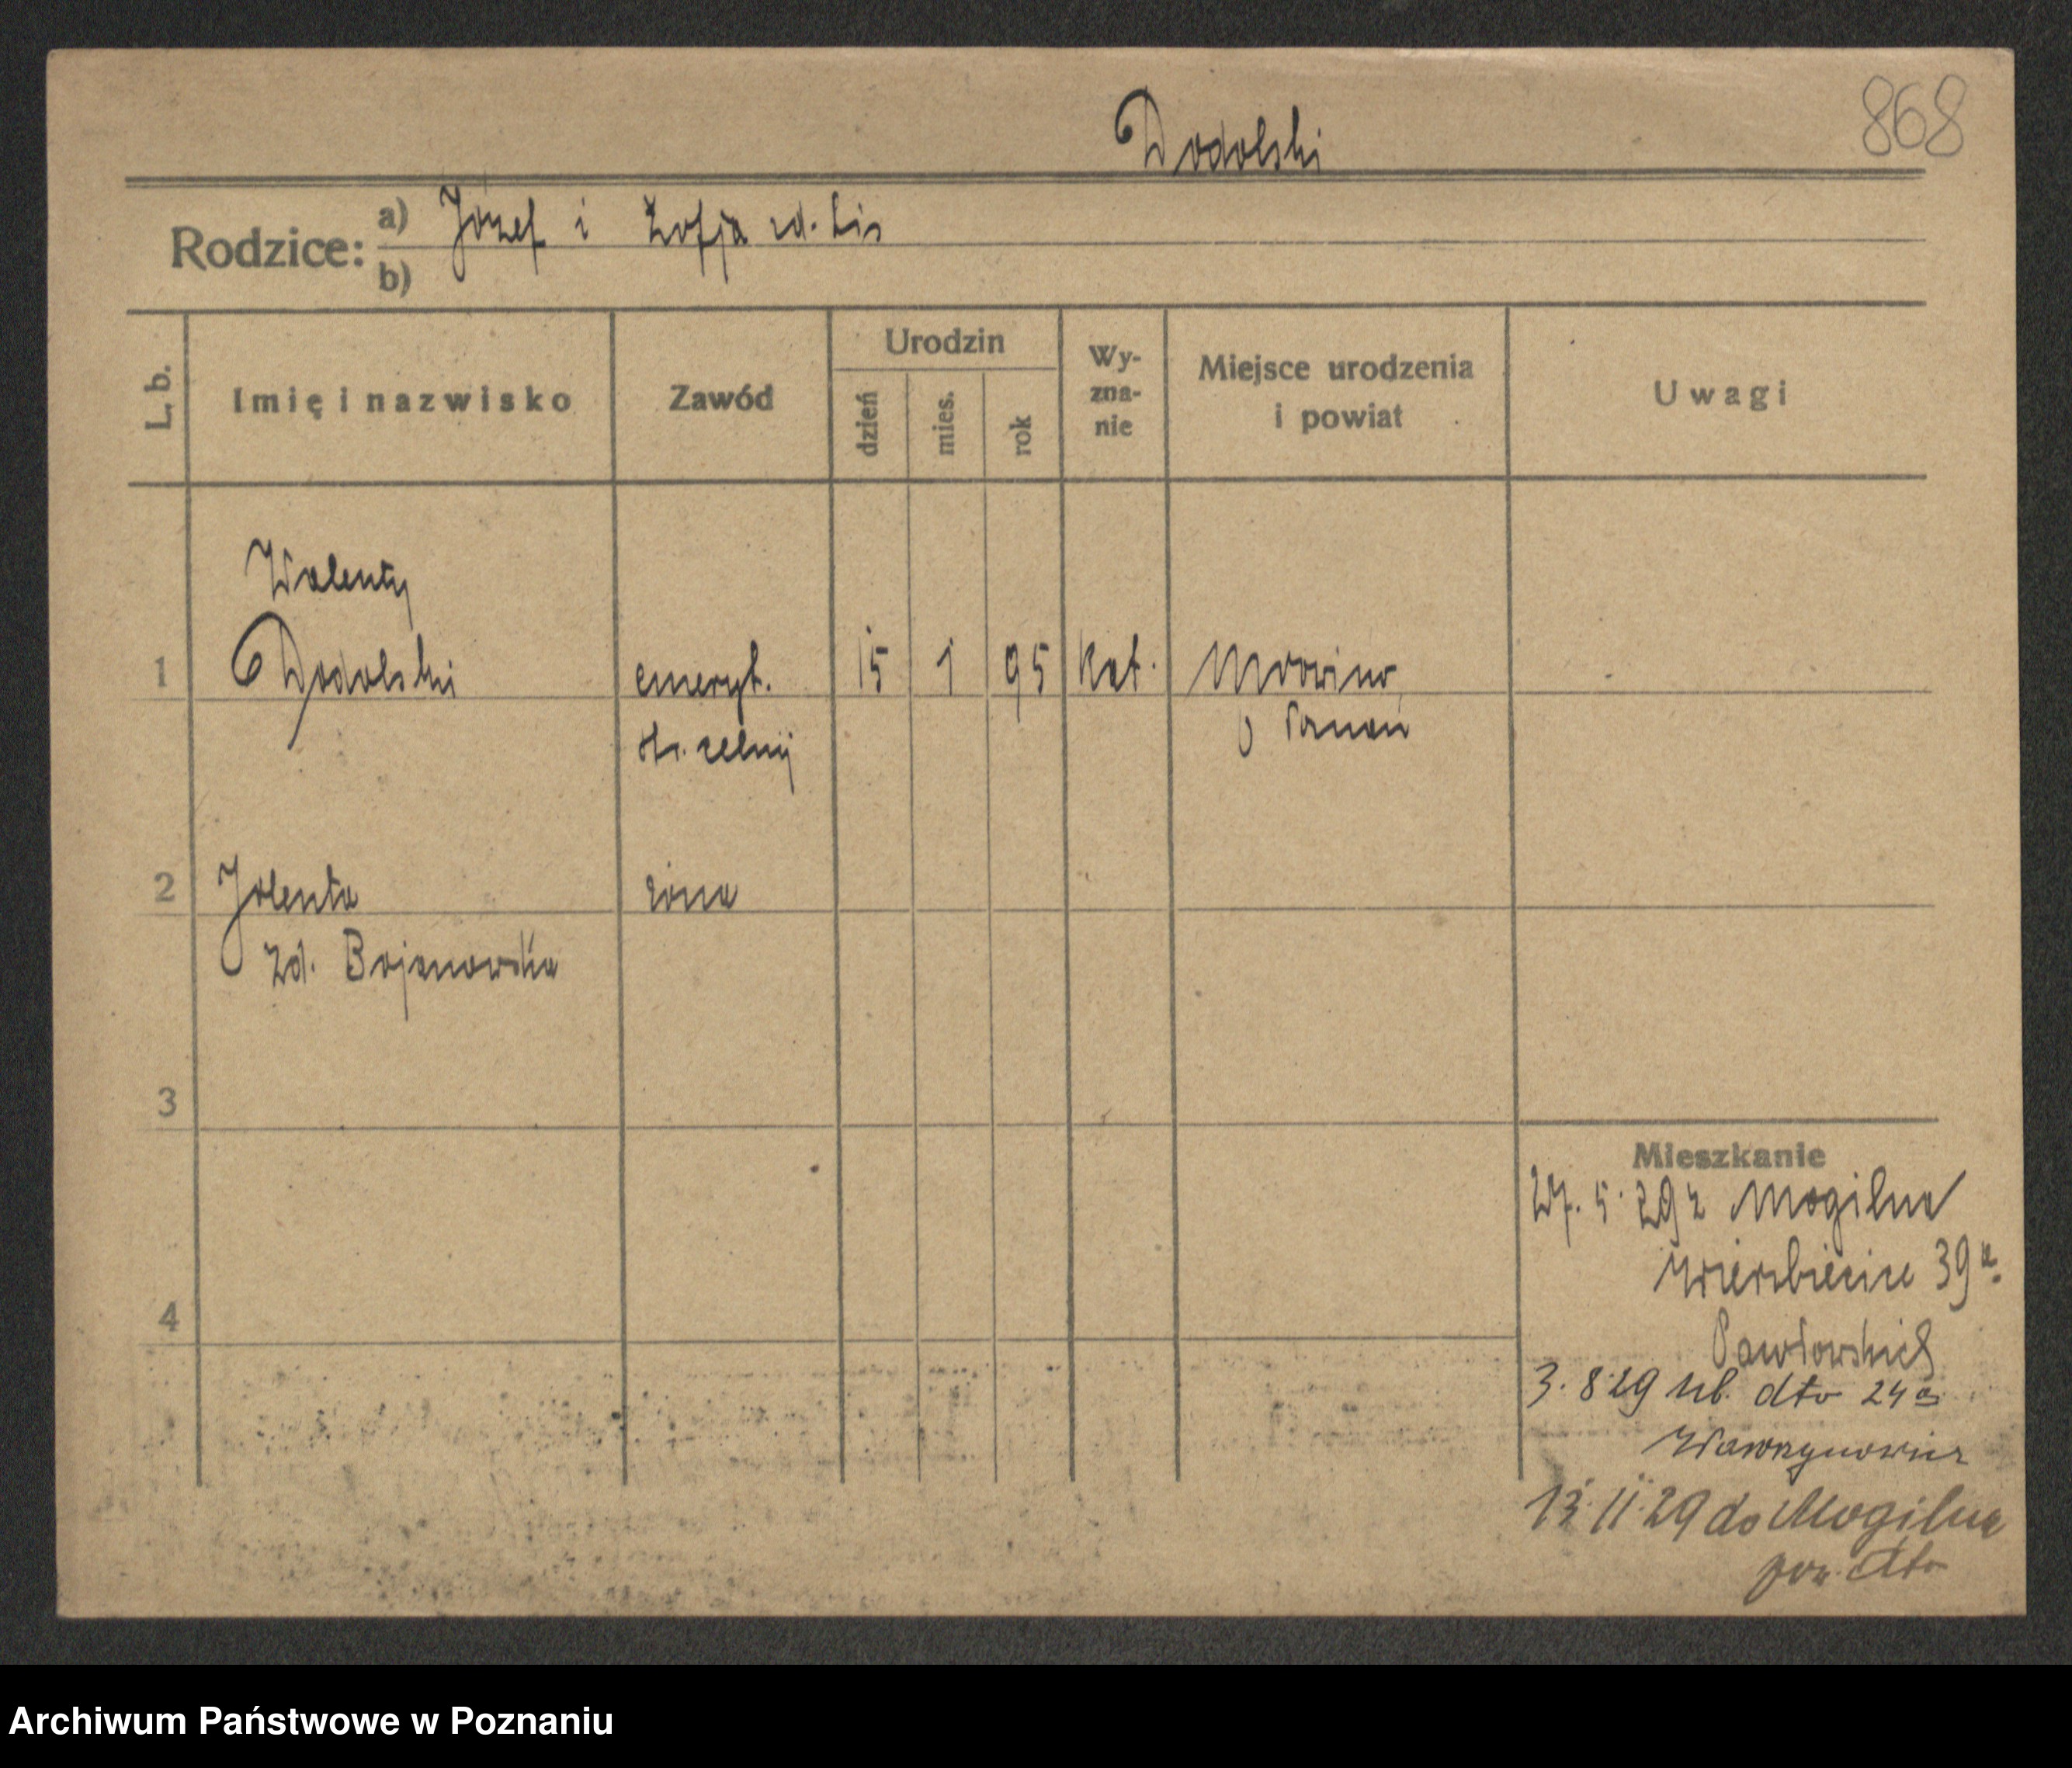 868
Dodolski
Rodzice: a) Józef i Zofja zd. Lis
b)
L. b.
Imię i nazwisko
Zawód
Urodzin
dzień
mies.
rok
Wy-
zna-
nie
Miejsce urodzenia
i powiat
Uwagi
Walenty
1 Dodolski emeryt. 15 1 95 kat. Mrowino
Poznań
2 Jolenta żona
zd. Bojanowska
3
4
Mieszkanie
27. 5. 29 z Mogilna
Wierzbięcice 39 a.
Pawłowskich
3. 8 29 ub. dto 24 a
Wawrzynowicz
13 11 29 do Mogilna
pow. dto
Archiwum Państwowe w Poznaniu